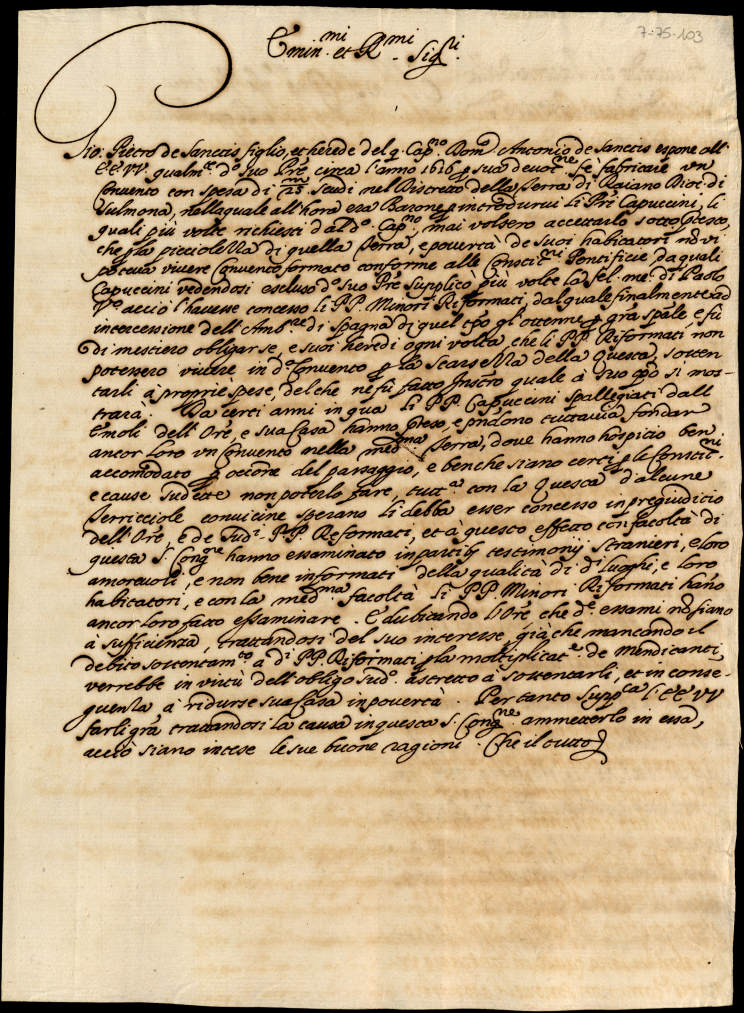 7-75-103
Emin.mi et R.mi Sig.ri
Gio: Pietro de Sanctis figlio, et herede del q. Cap.no Dom.o Antonio de Sanctis espone all'
E.E. VV. qualm.te d.o suo Pre, circa l'anno 1616 p sua devot.ne fè fabricare vn
Convento con spesa di 25 Scudi nel Distretto della Terra di Raiano Dioc. di
Sulmona, nella quale all'hora era Barone p introdurvi li Pri Capuccini, li
quali più volte richiesti dal d.o Cap.no mai volsero accettarlo sotto
che p la picciolezza di quella Terra, e povertà de suoi habitatori nõ vi
poteua vivere Convento formato conforme alle Constit.ni Pontificie da quali
Capuccini vedendosi escluso d.o suo Pre supplicò più volte la fel. me. di Paolo
V.o acciò l'hauesse concesso li PP. Minori Riformati, dal quale finalmente ad
intercessione dell'Amb.re di Spagna di quel tpo gl'ottenne p gra spale, e fù
di mestiero obligarse, e suoi heredi ogni volta, che li PP. Riformati non
potessero vivere in d.o Convento p la scarsezza della questa, sosten
tarli à proprie spese, del che ne fù fatto Instro quale à suo tpo si mos-
trarà. Da certi anni in qua li PP. Capuccini spallegiati dall
Emoli dell'Ore, e sua Casa hanno preso, e prndono tuttauia fondar
ancor loro vn Convento nella med.ma Terra, doue hanno hospicio ben
accomodato p occõre del passaggio, e benche siano certi p le Constit.ni
e cause sudette non poterlo fare, tutt.a con la questa d'alcune
Terricciole convicine sperano li debba esser concesso in pregiudicio
dell'Ore, e de sud.i PP. Reformati, et à questo effetto con facoltà di
questa S. Cong.ne hanno essaminato in partib testimonij stranieri, e loro
amoreuoli, e non bene informati della qualità di d.i luoghi, e loro
habitatori, e con la med.ma facoltà li PP. Minori Riformati hano
ancor loro fatto essaminare. E dubitando l'Ore, che d.i essami nõ siano
à sufficienza, trattandosi del suo interesse, già che mancando il
debito sostentam.to à d.i PP. Riformati p la moltiplicat.e de mendicanti,
verrebbe in virtù dell'obligo sud.o astretto à sostentarli, et in conse-
quenza, à ridurse sua Casa in povertà. Per tanto supp.ca l'EE VV
farli gra trattandosi la causa in questa S. Cong.ne ammetterlo in essa,
acciò siano intese le sue buone ragioni. Che il tutto